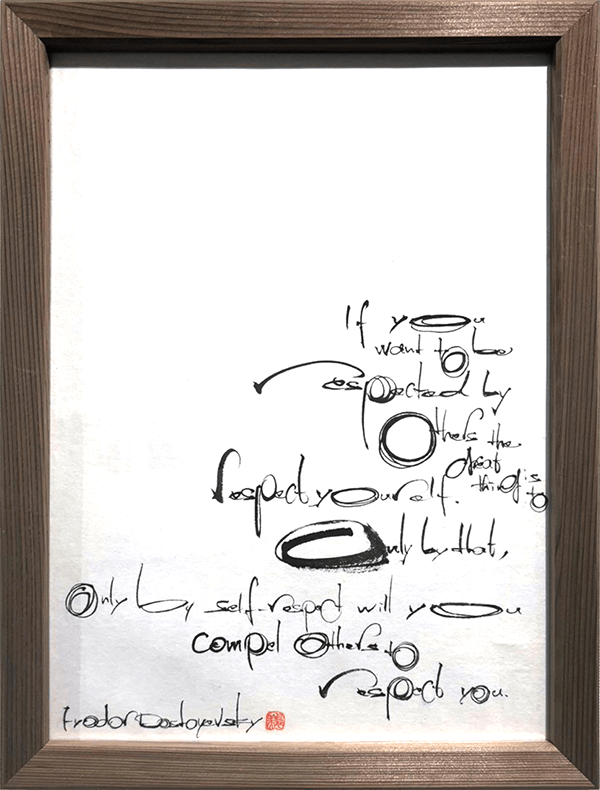 If you
want to be
respected by
others the
great
thing is
to
respect yourself.
Only by that,
Only by self-respect will you
compel others to
respect you.
Fyodor Dostoyevsky